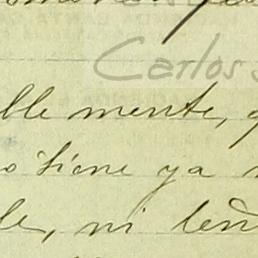 Carlos
lle mente,
tiene ya
le, ni leñ